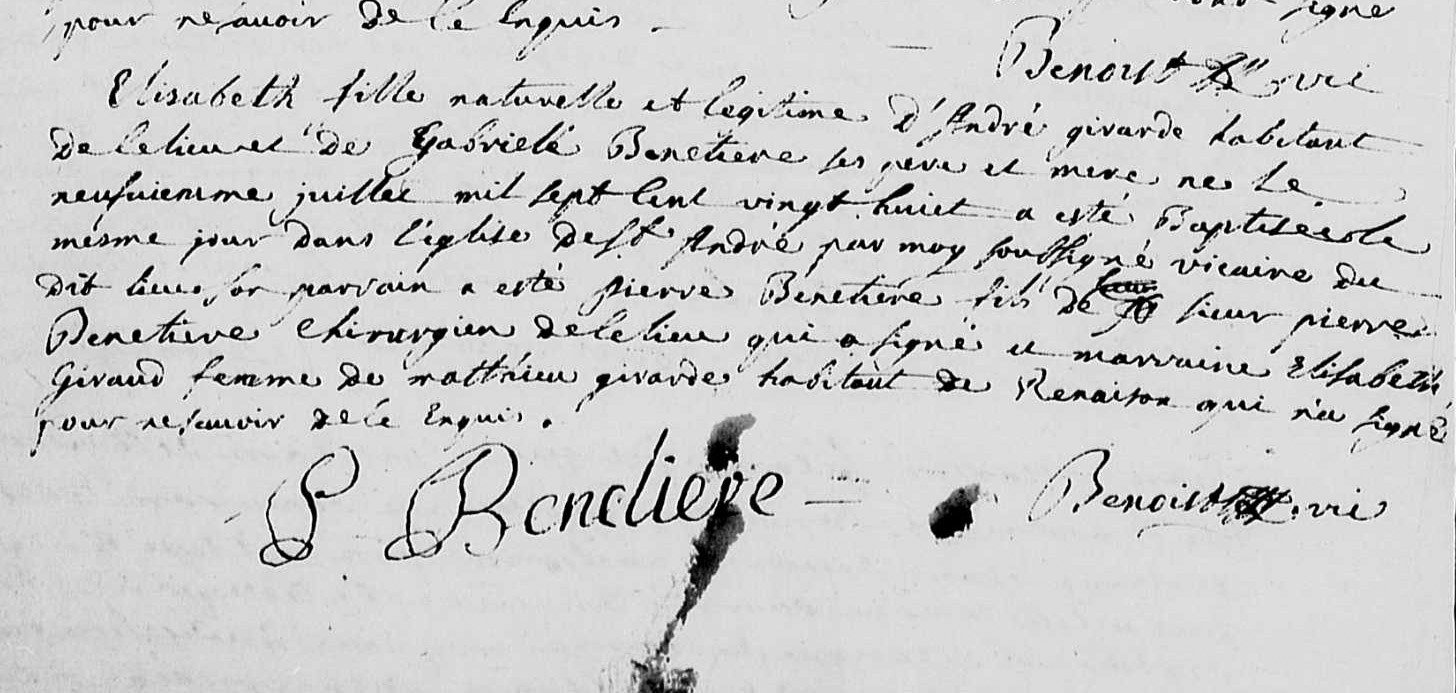 pour ne savoir de ce Enquis. signé
Benoist vic
Elisabeth fille naturelle et legitime d'André girarde habitant
de ce lieu et de Gabrielé Benetiere ses pere et mere ne le
neufuiemme juillet mil sept cent vingt huict a esté Baptisée le
mesme jour dans l'eglise de St André par moy soussigné vicaire du
dit lieu. son parrain a esté pierre Benetiere fils de sieur pierre
Benetiere chirurgien de ce lieu qui a signé et marraine Elisabeth
Giraud femme de matthieu girarde habitant de Renaison qui n'a signé
pour ne savoir de ce Enquis.
P Benetiere Benoist vic